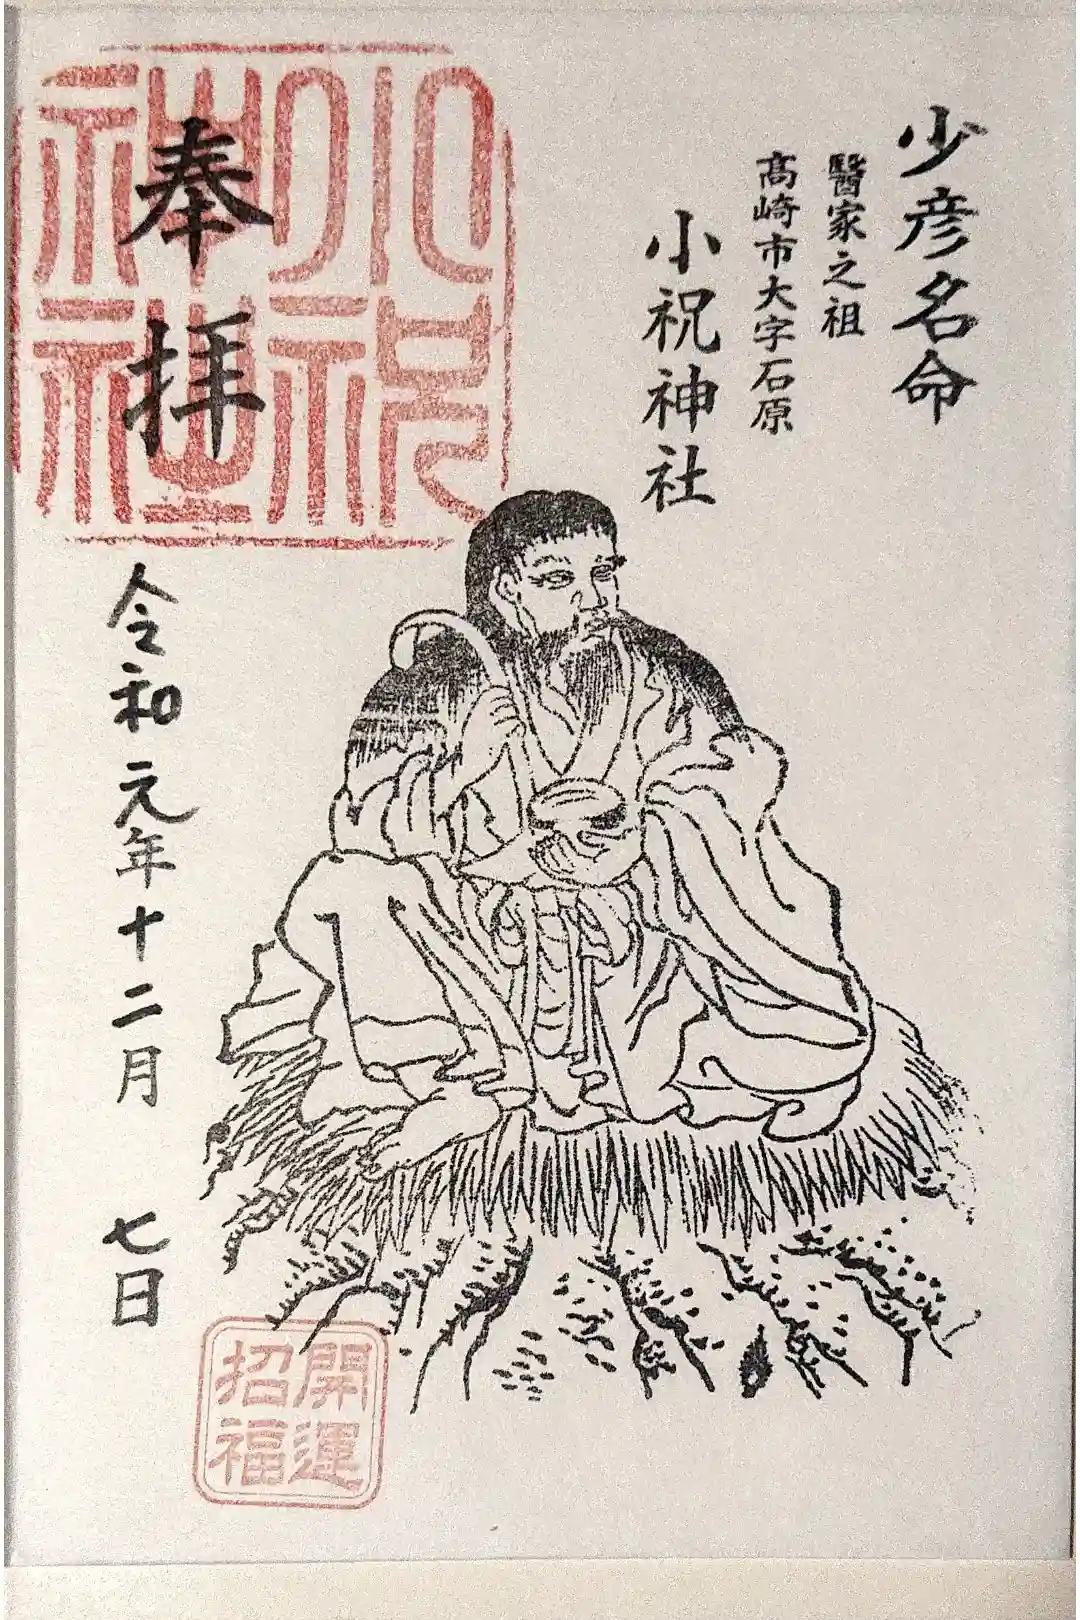 少彦名命
醫家之祖
高崎市大字石原
小祝神社
奉拝
小祝
神社
令和元年十二月七日
開運
招福